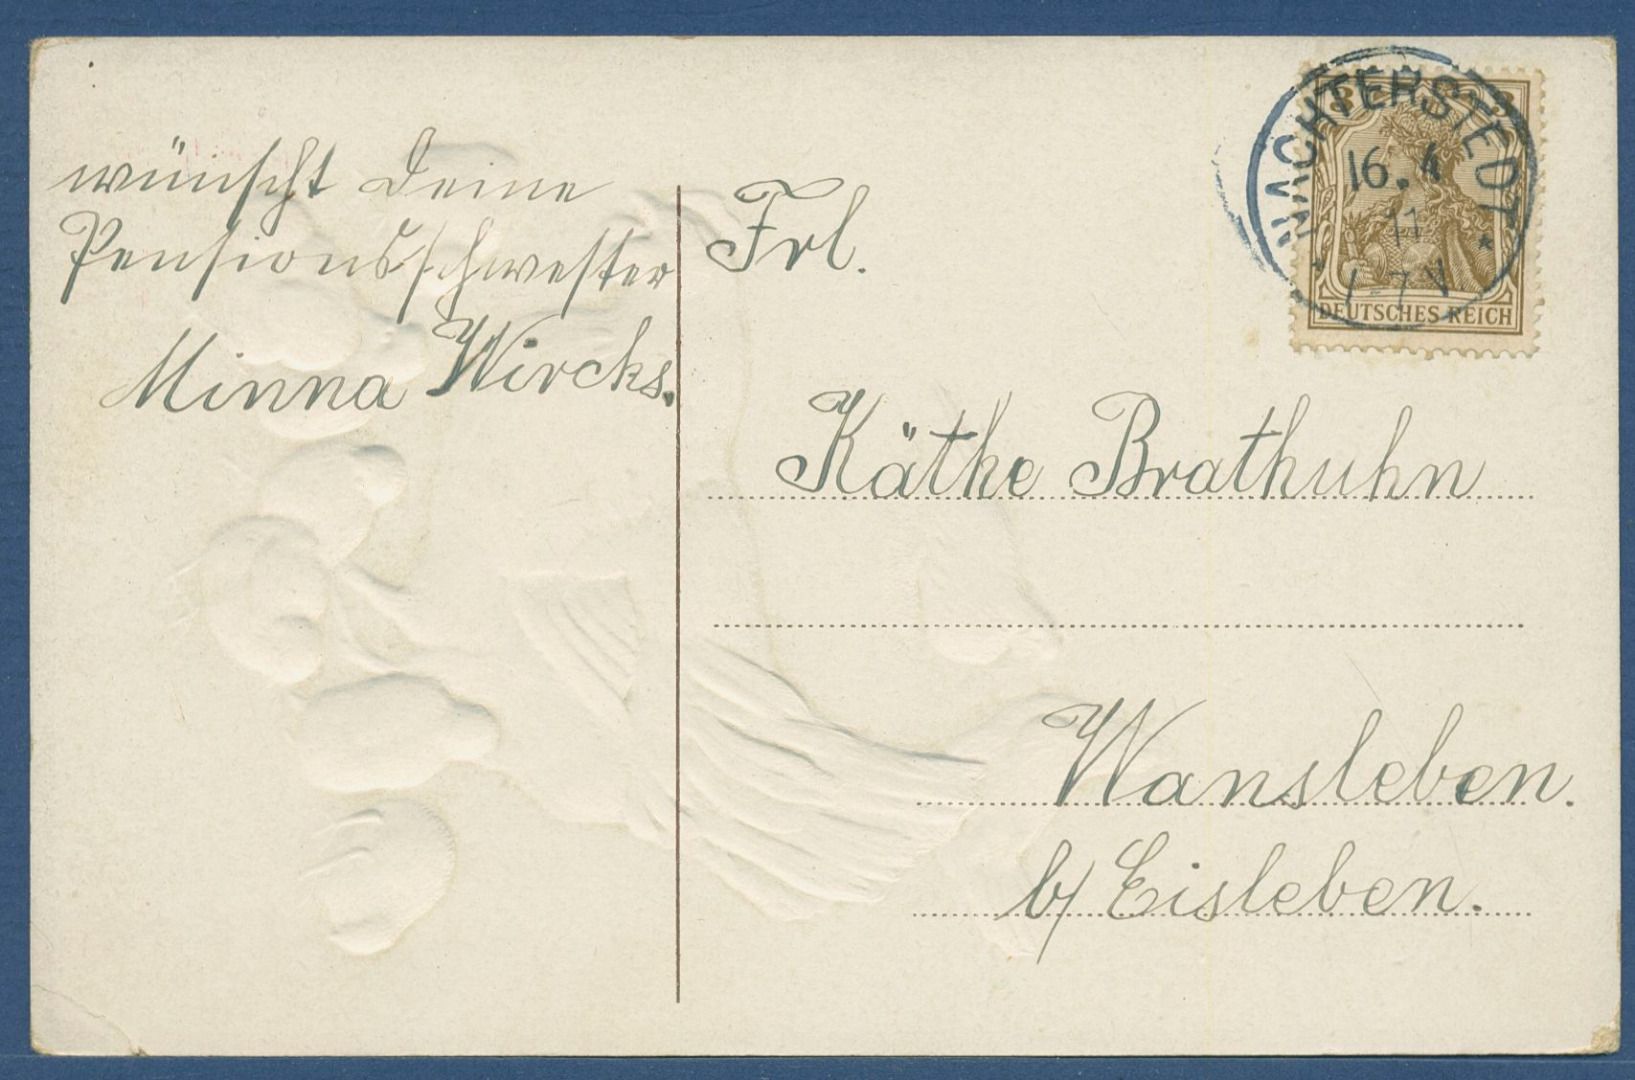 wünscht Deine
Pensionsschwester
Minna Wircks.
NACHTERSTEDT
16. 4
11
7 V
3 3
DEUTSCHES REICH
Frl.
Käthe Brathuhn
Wansleben.
b/ Eisleben.